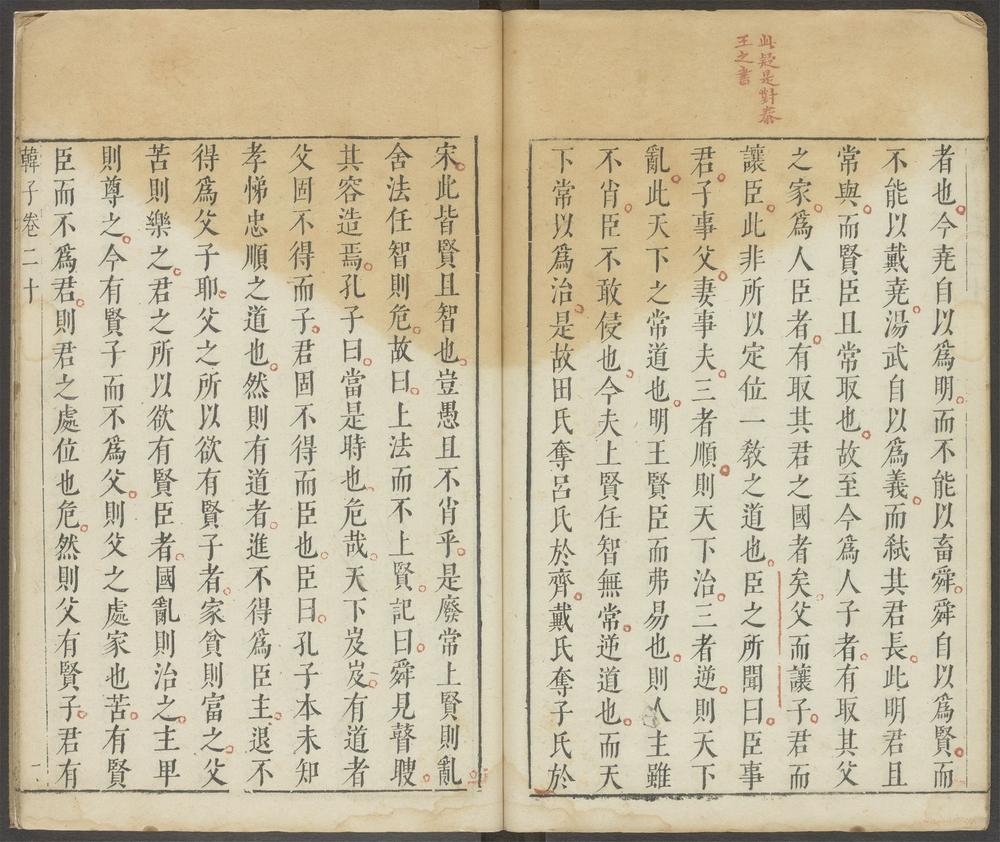 此疑是對秦
王之書
者也今堯自以爲明而不能以畜舜舜自以爲賢而
不能以戴堯湯武自以爲義而弑其君長此明君且
常與而賢臣且常取也故至今爲人子者有取其父
之家爲人臣者有取其君之國者矣父而讓子君而
讓臣此非所以定位一敎之道也臣之所聞曰臣事
君子事父妻事夫三者順則天下治三者逆則天下
亂此天下之常道也明王賢臣而弗易也則人主雖
不肖臣不敢侵也今夫上賢任智無常逆道也而天
下常以爲治是故田氏奪呂氏於齊戴氏奪子氏於
宋此皆賢且智也豈愚且不肖乎是廢常上賢則亂
舍法任智則危故曰上法而不上賢記曰舜見瞽瞍
其容造焉孔子曰當是時也危哉天下岌岌有道者
父固不得而子君固不得而臣也臣曰孔子本未知
孝悌忠順之道也然則有道者進不得爲臣主退不
得爲父子耶父之所以欲有賢子者家貧則富之父
苦則樂之君之所以欲有賢臣者國亂則治之主卑
則尊之今有賢子而不爲父則父之處家也苦有賢
臣而不爲君則君之處位也危然則父有賢子君有
韓子卷二十
一